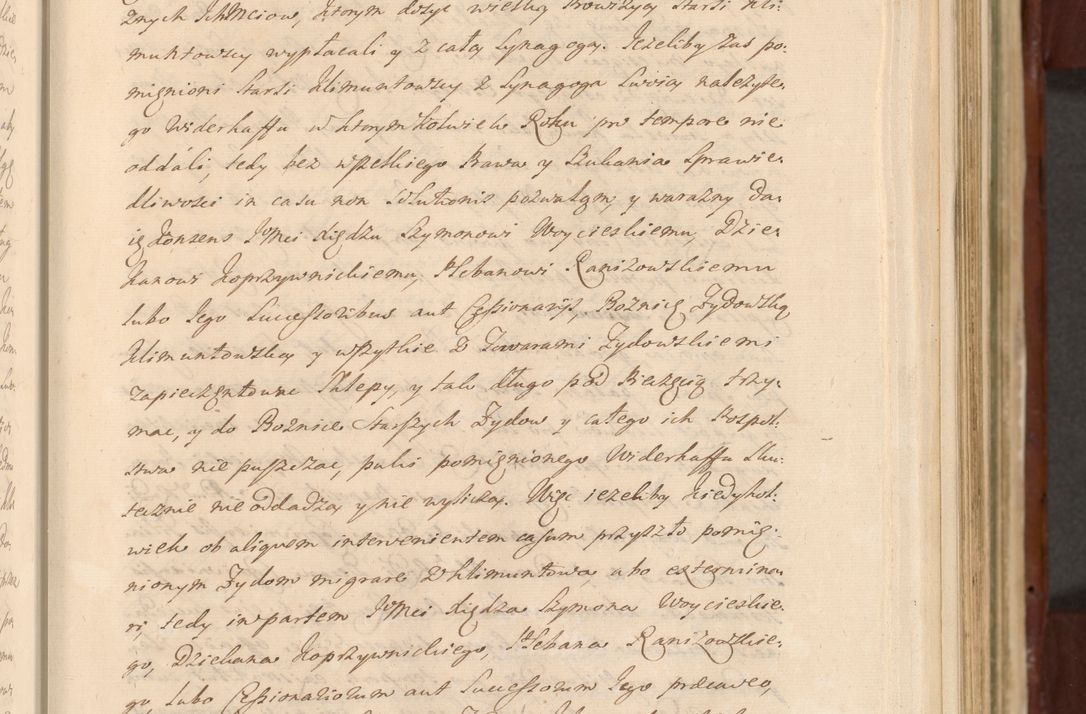 znych Ichmciow, ktorym dosyc wielką Prowizyą Starsi Kli-
muntowscy wypłacali y z całą Synagogą. Ieżeliby zas po-
mięnioni Starsi Klimuntowscy z Synagogą Swoią należyte-
go Widerkaffu w ktorymkolwiek Roku pro tempore nie
oddáli, tedy bez wszelkiego Prawa y Szukania Sprawie-
dliwosci in casu non Solutionis pozwaląm, y warazny da-
ię Konsens Jmci Xiędzu Szymonowi Woycieskiemu, Dzie-
kanowi Koprzywnickiemu, Plebanowi Raniżowskiemu
lubo Iego Successoribus aut Cessionarijs, Boznicę Żydowską
Klimuntowską y wszytkie z Towarami Żydowskiemi
zapieczętowac Sklepy, y tak długo pod Pieczęcią trzy-
mac, y do Boznice Starszych Żydow y całego ich Pospol-
stwa nie puszczac, pukiś pomięnionego Widerkaffu Sku-
tecznie nie oddadzą y nie wyliczą. Więc ieżeliby kiedykol-
wiek ob aliquem intervenientem casum przyszło pomię-
nionym Żydom migrare z Klimuntowa abo extermina-
ri, tedy in partem Jmci Xiędza Szymona Woycieskie-
go, Dziekana Koprzywnickiego, Plebana Raniżowskie-
go lubo Cessionariorum aut Successorum Iego praecaveo,